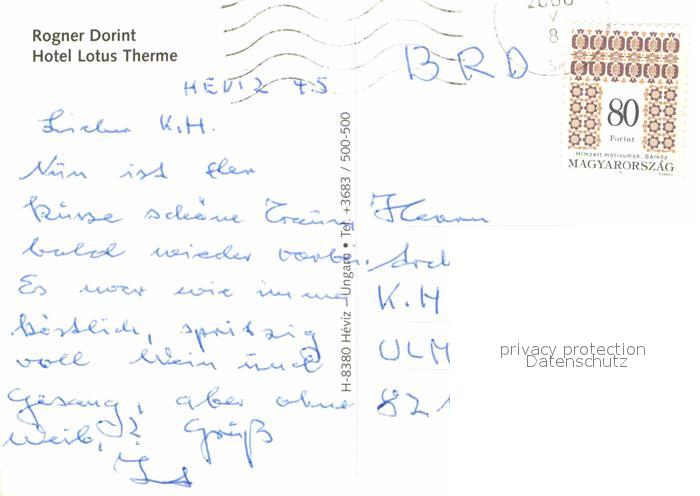 Rogner Dorint
Hotel Lotus Therme
HÉVIZ 4.5
Lieber K.H.
Nun ist der
kurze schöne Traum
bald wieder vorbei.
Es war wie immer
köstlich, spritzig
voll Wein und
Gesang, aber ohne
Weib,? Gruß
H-8380 Héviz • Ungarn • Tel. +3683 / 500-500
2000
V
8
BRD
80
Forint
Hímzett motívumok. Sárköz
MAGYARORSZÁG
Herrn
K.H
ULM
privacy protection
Datenschutz